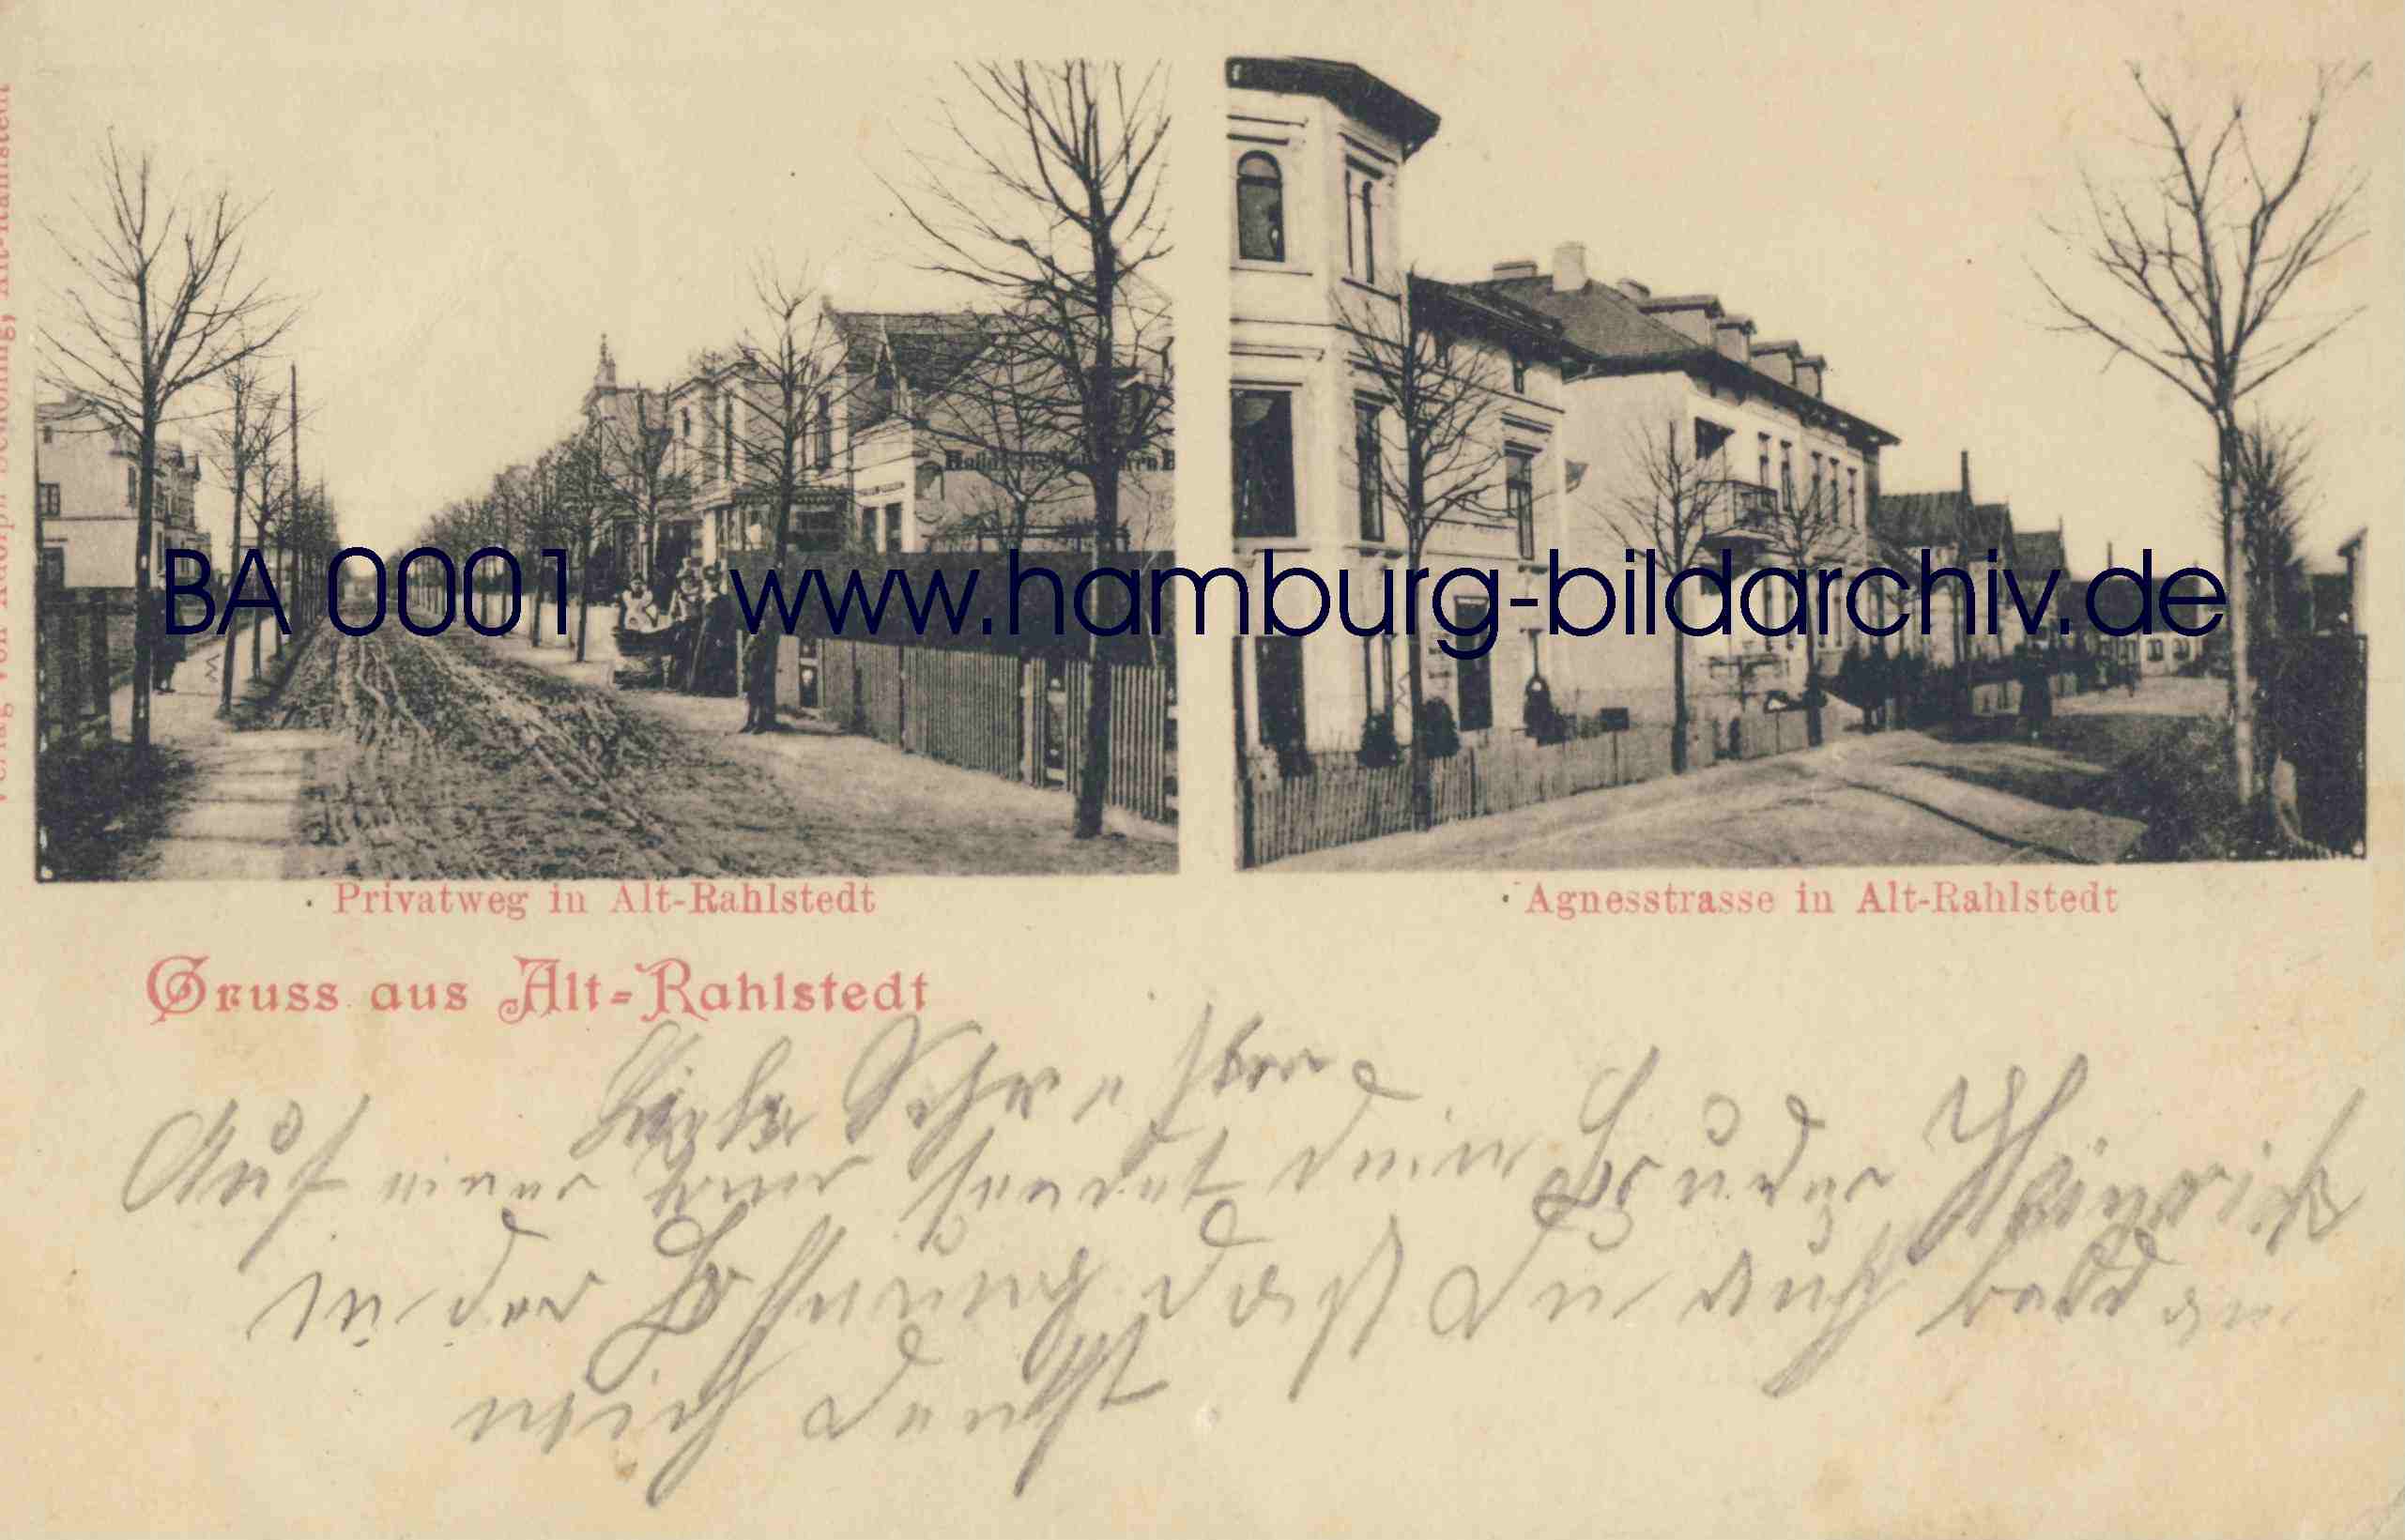 Verlag von Adolph Schölling, Alt-Rahlstedt
BA 0001 www.hamburg-bildarchiv.de
Privatweg in Alt-Rahlstedt
Agnesstrasse in Alt-Rahlstedt
Gruss aus Alt-Rahlstedt
Liebe Schwester
Auf einer sendet dein Bruder Heinrich
in der Hoffnung daß Du auch bald an
mich denkst